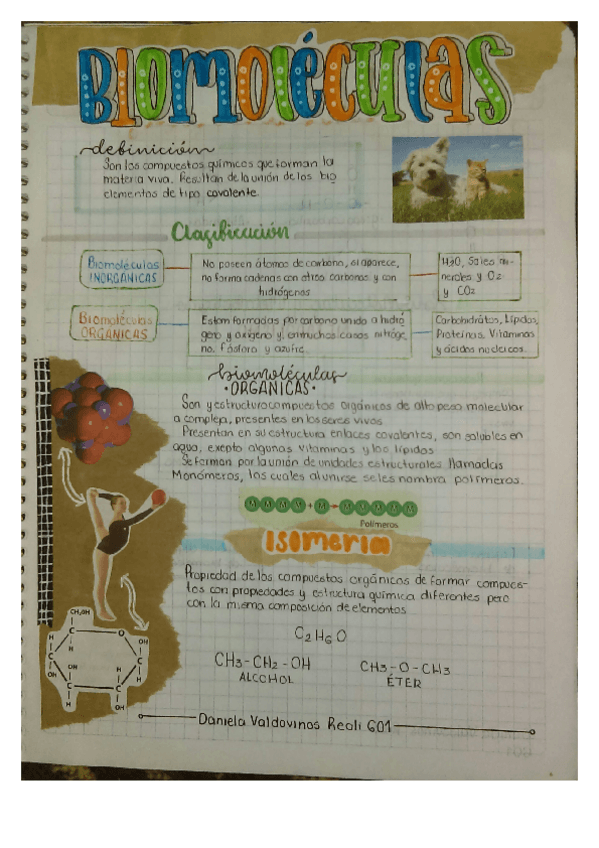 BIOMOLÉCULAS
definición
Son los compuestos químicos que forman la
materia viva. Resultan de la unión de los bio
elementos de tipo covalente.
Clasificación
Biomoléculas
INORGÁNICAS
No poseen átomos de carbono, si aparece,
no forma cadenas con otros carbonos y con
hidrógenos
H2O, Sales mi-
nerales y O2
y CO2
Biomoléculas
ORGÁNICAS
Estam formadas por carbono unido a hidró
geno y oxígeno y, en muchos casos nitróge
no, fósforo y azufre.
Carbohidratos, Lípidos,
Proteínas, Vitaminas
y ácidos nucleicos.
biomoléculas
•ORGÁNICAS•
Son y estructuro compuestos orgánicos de alto peso molecular
a compleja, presentes en los seres vivos
Presentan en su estructura enlaces covalentes, son solubles en
agua, exepto algunas vitaminas y los lípidos
Se forman por la unión de unidades estructurales llamadas
Monómeros, los cuales al unirse se les nombra polímeros.
M M M M + M → M M M M M
Polímeros
ISOMERIA
Propiedad de los compuestos orgánicos de formar compues-
tos con propiedades y estructura química diferentes pero
con la misma composición de elementos
C2H6O
CH3-CH2-OH
ALCOHOL
CH3-O-CH3
ÉTER
CH2OH
C
O
H
OH
H
C
C
OH
OH
H
H
C
C
H
OH
Daniela Valdovinos Reoli 601